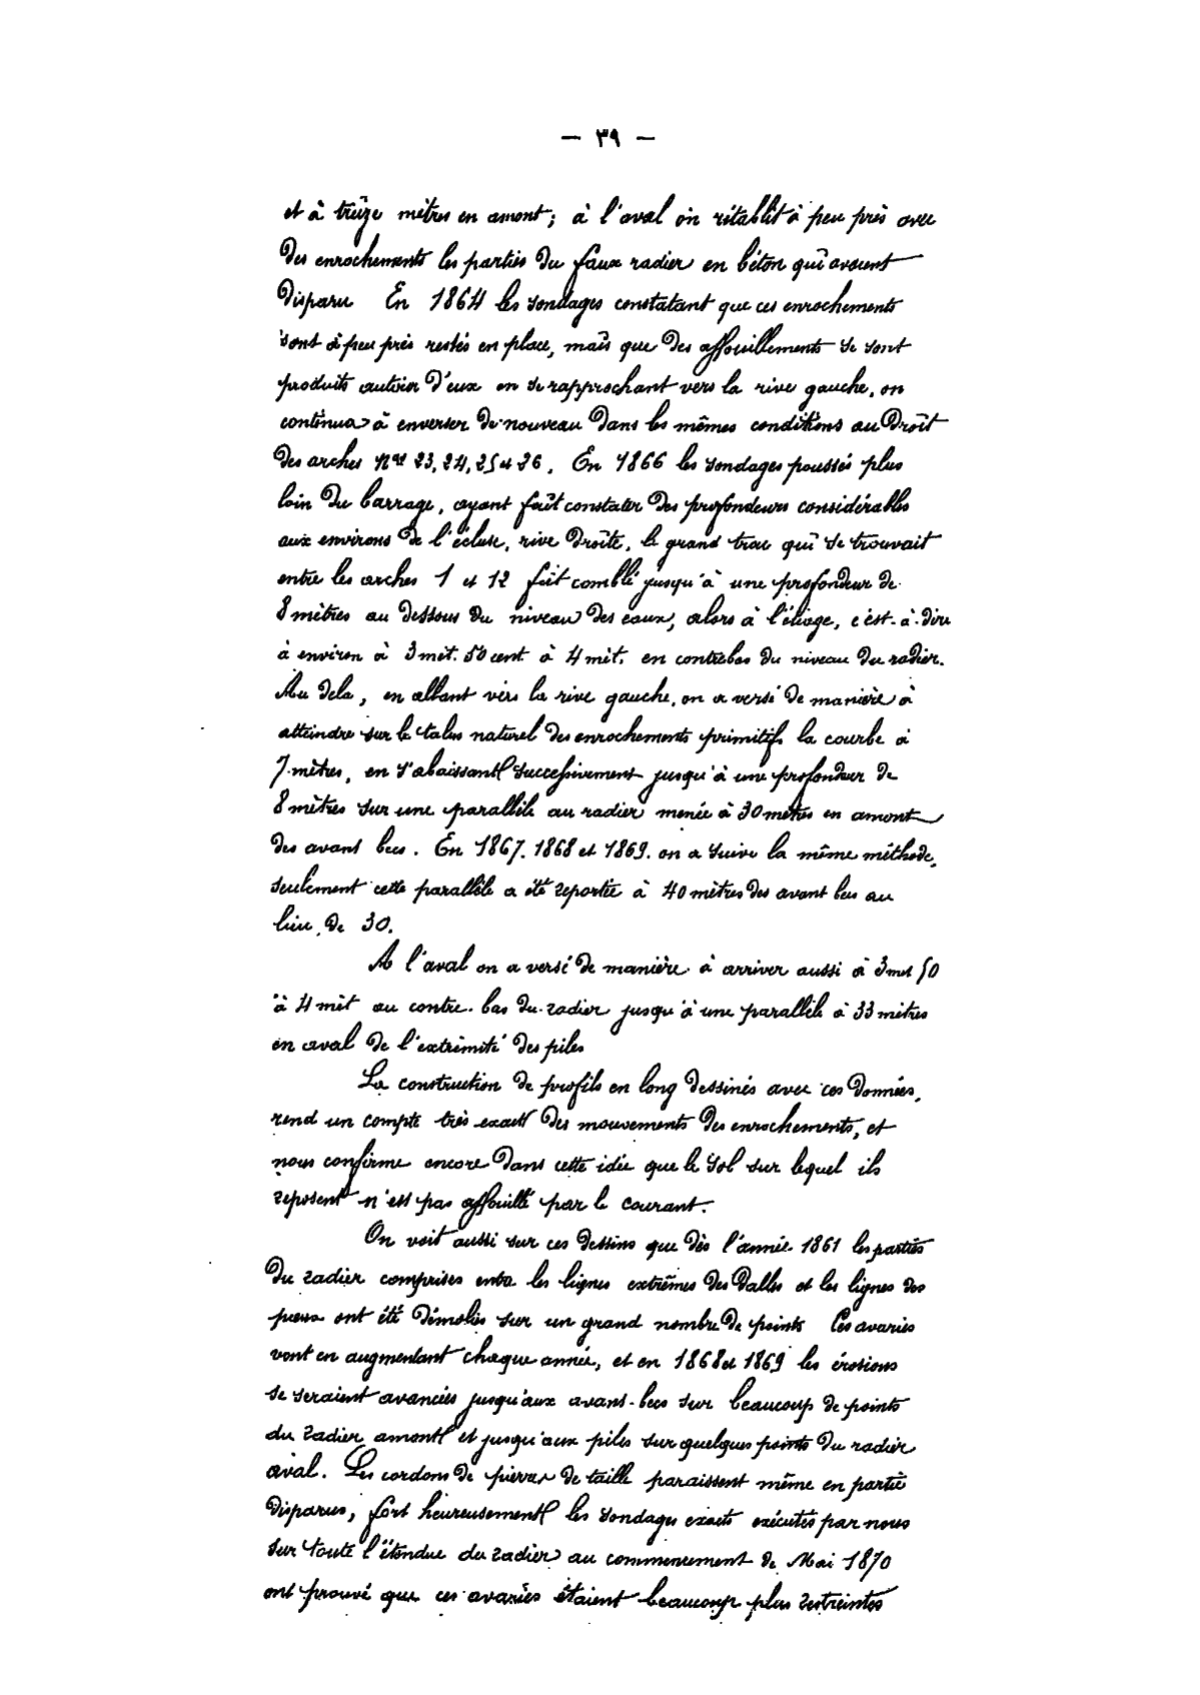 — ٣٩ —
et à treize mètres en amont; à l'aval on rétablit à peu près avec
des enrochements les parties du faux radier en béton qui avaient
disparu En 1864 les sondages constatant que ces enrochements
sont à peu près restés en place, mais que des affouillements se sont
produits autour d'eux en se rapprochant vers la rive gauche, on
continua à enverser de nouveau dans les mêmes conditions au droit
des arches Nos 23, 24, 25 et 26. En 1866 les sondages poussés plus
loin du barrage, ayant fait constater des profondeurs considérables
aux environs de l'écluse, rive droite, le grand trou qui se trouvait
entre les arches 1 et 12 fut comblé jusqu'à une profondeur de
8 mètres au dessous du niveau des eaux, alors à l'étiage, c'est-à-dire
à environ à 3 mèt. 50 cent à 4 mèt. en contrebas du niveau du radier.
Au dela, en allant vers la rive gauche, on a versé de manière à
atteindre sur le talus naturel des enrochements primitifs la courbe à
7 mètres, en s'abaissant successivement jusqu'à une profondeur de
8 mètres sur une parallèle au radier menée à 30 mètres en amont
des avant becs. En 1867. 1868 et 1869. on a suivi la même méthode,
seulement cette parallèle a été reportée à 40 mètres des avant becs au
lieu de 30.
A l'aval on a versé de manière à arriver aussi à 3 met 50
à 4 mèt au contre-bas du radier jusqu'à une parallèle à 33 mètres
en aval de l'extrémité des piles
La construction de profils en long dessinés avec ces données,
rend un compte très exact des mouvements des enrochements, et
nous confirme encore dans cette idée que le sol sur lequel ils
reposent n'est pas affouillé par le courant.
On voit aussi sur ces dessins que dès l'année 1861 les parties
du radier comprises entre les lignes extrêmes des dalles et les lignes des
pieux ont été démolies sur un grand nombre de points Ces avaries
vont en augmentant chaque année, et en 1868 et 1869 les érosions
se seraient avancées jusqu'aux avant-becs sur beaucoup de points
du radier amont et jusqu'aux piles sur quelques points du radier
aval. Les cordons de pierres de taille paraissent même en partie
disparus, fort heureusement les sondages exacts exécutés par nous
sur toute l'étendue du radier au commencement de Mai 1870
ont prouvé que ces avaries étaient beaucoup plus restreintes